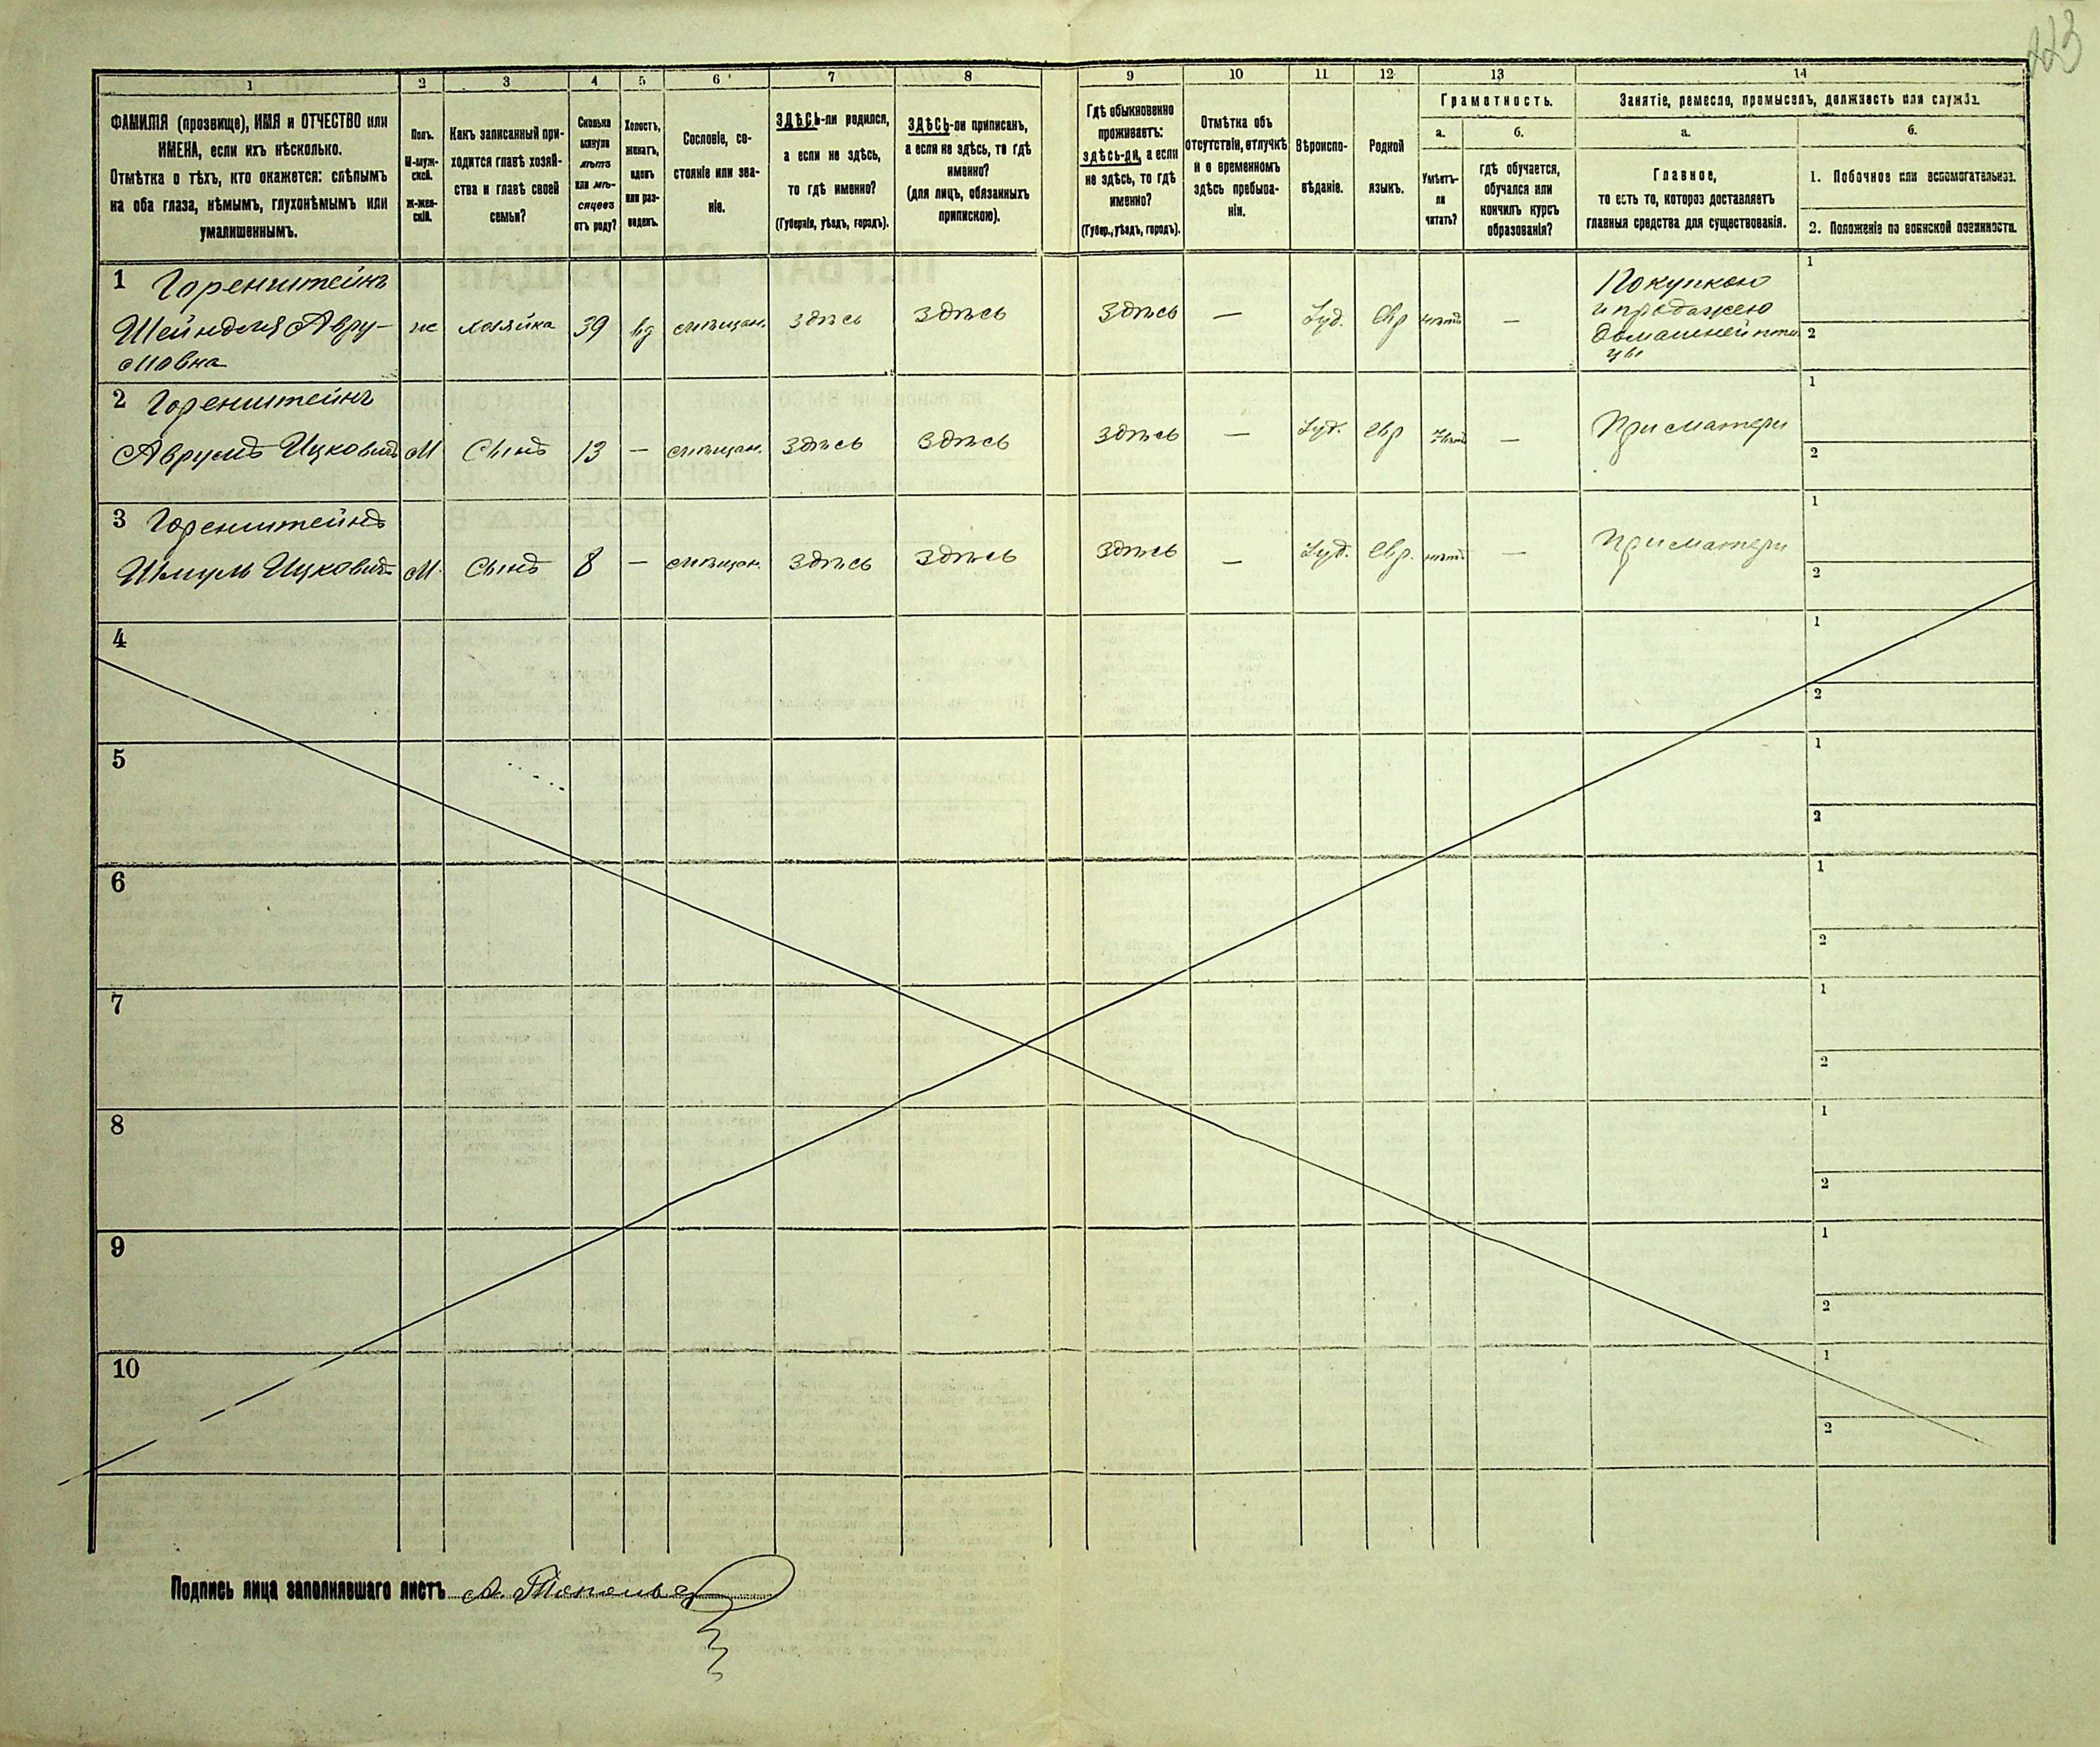 223
1 2 3 4 5 6 7 8 9 10 11 12 13 14
ФАМИЛІЯ (прозвище), ИМЯ и ОТЧЕСТВО или
ИМЕНА, если ихъ нѣсколько.
Отмѣтка о тѣхъ, кто окажется: слѣпымъ
на оба глаза, нѣмымъ, глухонѣмымъ или
умалишеннымъ.
Полъ.
М-муж-
ской.
Ж-жен-
скій.
Какъ записанный при-
ходится главѣ хозяй-
ства и главѣ своей
семьи?
Сколько
минуло
лѣтъ
или мѣ-
сяцевъ
отъ роду?
Холостъ,
женатъ,
вдовъ
или раз-
веденъ.
Сословіе, со-
стояніе или зва-
ніе.
ЗДѢСЬ-ли родился,
а если не здѣсь,
то гдѣ именно?
(Губернія, уѣздъ, городъ).
ЗДѢСЬ-ли приписанъ,
а если не здѣсь, то гдѣ
именно?
(для лицъ, обязанныхъ
припискою).
Гдѣ обыкновенно
проживаетъ:
здѣсь-ли, а если
не здѣсь, то гдѣ
именно?
(Губер., уѣздъ, городъ).
Отмѣтка объ
отсутствіи, отлучкѣ
и о временномъ
здѣсь пребыва-
ніи.
Вѣроиспо-
вѣданіе.
Родной
языкъ.
Грамотность.
а. б.
Умѣетъ-
ли
читать?
гдѣ обучается,
обучался или
кончилъ курсъ
образованія?
Занятіе, ремесло, промыселъ, должность или служба.
а. б.
Главное,
то есть то, которое доставляетъ
главныя средства для существованія.
1. Побочное или вспомогательное.
2. Положеніе по воинской повинности.
1 Горенштейнъ
Шейндля Авру-
мовна
ж хозяйка 39 вд мѣщан. здѣсь здѣсь здѣсь — Іуд. евр нѣтъ —
Покупкою
и продажею
домашней пти-
цы
1
2
2 Горенштейнъ
Аврумъ Ицковичъ М Сынъ 13 — мѣщан. здѣсь здѣсь здѣсь — Іуд. евр нѣтъ — При матери
1
2
3 Горенштейнъ
Шмуль Ицковичъ М. Сынъ 8 — мѣщан. здѣсь здѣсь здѣсь — Іуд. евр. нѣтъ — При матери
1
2
4 1
2
5 1
2
6 1
2
7 1
2
8 1
2
9 1
2
10 1
2
Подпись лица заполнявшаго листъ А.